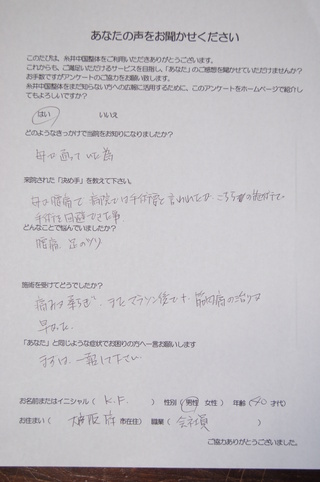 あなたの声をお聞かせください
このたびは、糸井中国整体をご利用いただきありがとうございます。
これからも、ご満足いただけるサービスを目指し、「あなた」のご感想を聞かせていただけませんか?
お手数ですがアンケートのご協力をお願い致します。
糸井中国整体をまだ知らない方への広報に活用するために、このアンケートをホームページで紹介し
てもよろしいですか?
はい いいえ
どのようなきっかけで当院をお知りになりましたか?
母が通っていた為
来院された「決め手」を教えて下さい。
母が腰痛で 病院では手術要と言われたが、こちらの施術で
手術を回避できた事
どんなことで悩んでいましたか?
腰痛 足のツリ
施術を受けてどうでしたか?
痛みが和らぎ、またマラソン後でも、筋肉痛の治りが
早かった。
「あなた」と同じような症状でお困りの方へ一言お願いします
まずは、一報け下さい
お名前またはイニシャル( K.F. ) 性別(男性 女性) 年齢(40 才代)
お住まい( 大阪府 市在住) 職業( 会社員 )
ご協力ありがとうございました。